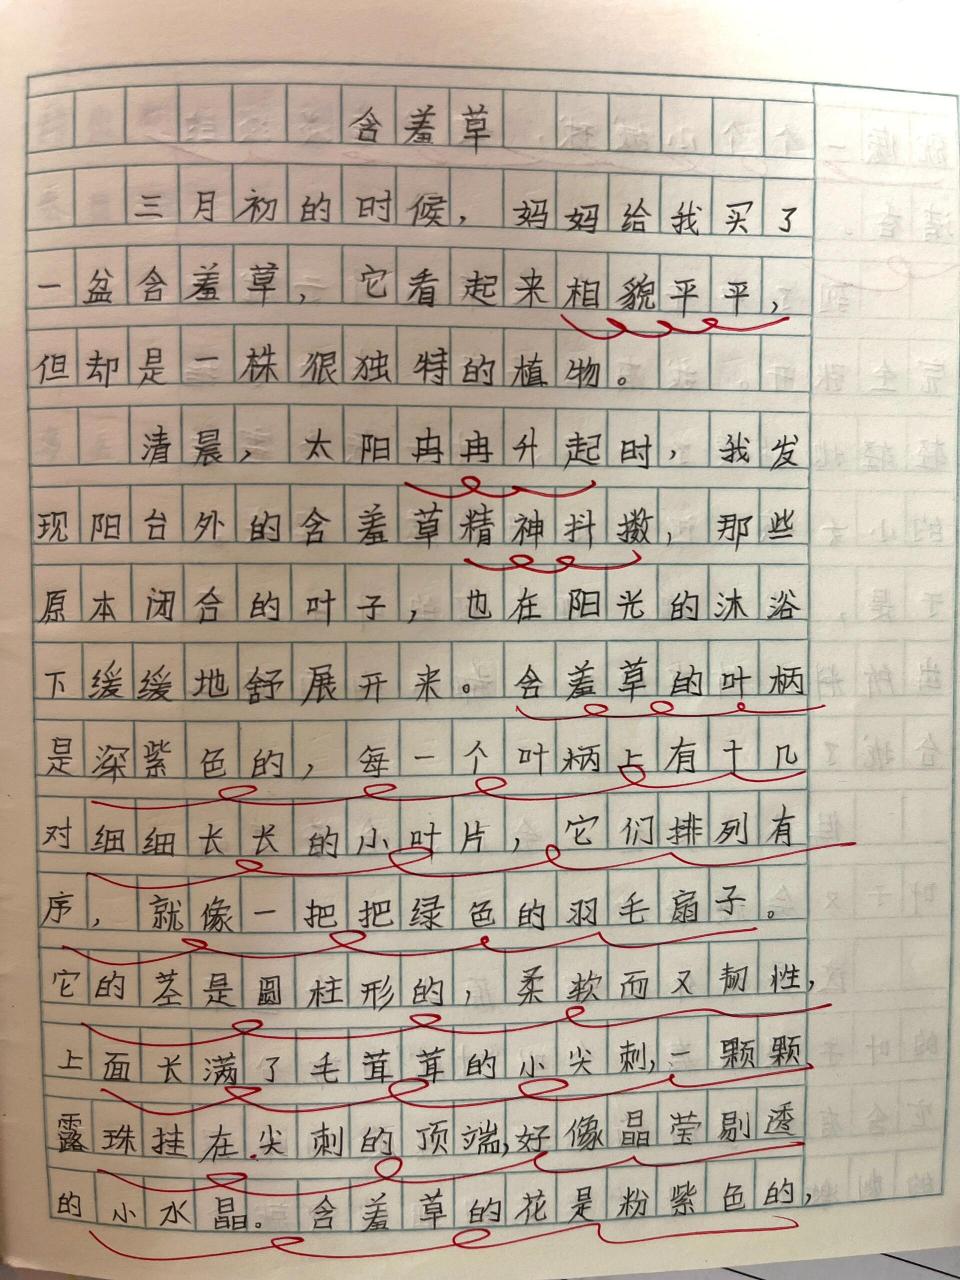 含羞草
三月初的时候，妈妈给我买了
一盆含羞草，它看起来相貌平平，
但却是一株很独特的植物。
清晨，太阳冉冉升起时，我发
现阳台外的含羞草精神抖擞，那些
原本闭合的叶子，也在阳光的沐浴
下缓缓地舒展开来。含羞草的叶柄
是深紫色的，每一个叶柄上有十几
对细细长长的小叶片，它们排列有
序，就像一把把绿色的羽毛扇子。
它的茎是圆柱形的，柔软而又韧性，
上面长满了毛茸茸的小尖刺，一颗颗
露珠挂在尖刺的顶端，好像晶莹剔透
的小水晶。含羞草的花是粉紫色的，